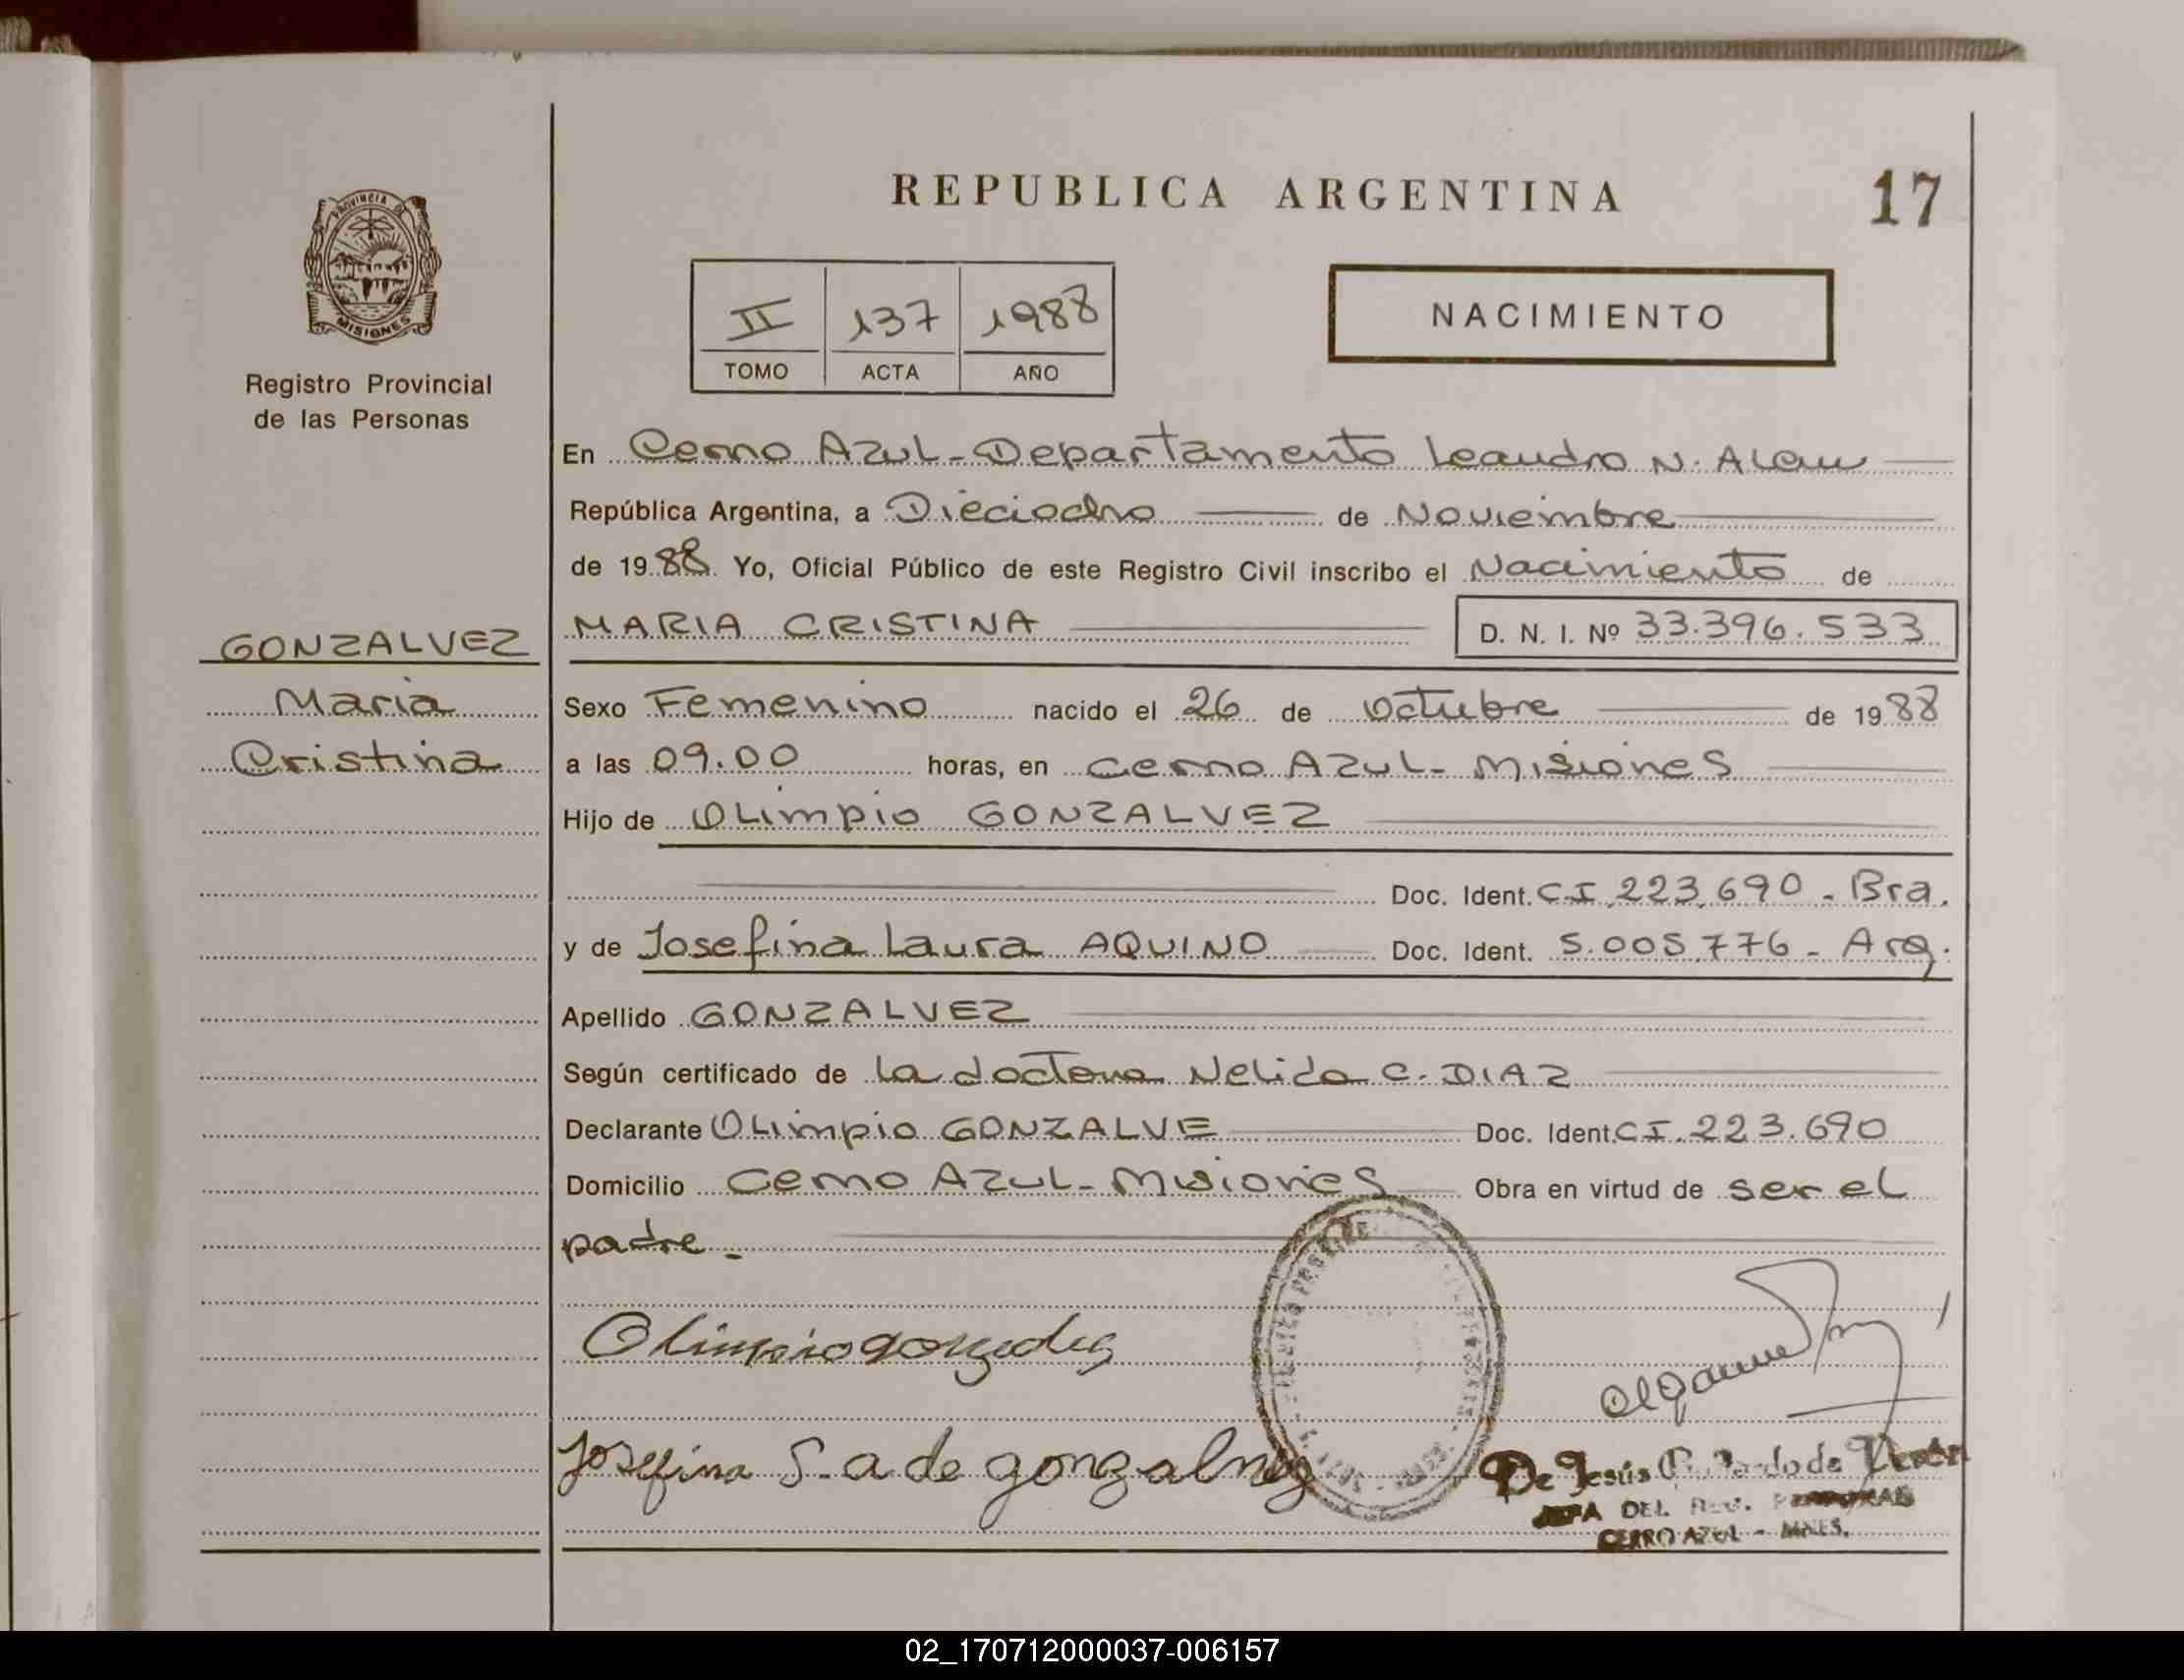 REPUBLICA ARGENTINA
17
PROVINCIA DE
MISIONES
Registro Provincial
de las Personas
II 137 1988
TOMO ACTA AÑO
NACIMIENTO
En Cerro Azul - Departamento Leandro N. Alem
República Argentina, a Dieciocho de Noviembre
de 1988. Yo, Oficial Público de este Registro Civil inscribo el Nacimiento de
GONZALVEZ
Maria
Cristina
MARIA CRISTINA D. N. I. Nº 33.396.533
Sexo Femenino nacido el 26 de Octubre de 1988
a las 09.00 horas, en Cerro Azul - Misiones
Hijo de Olimpio GONZALVEZ
Doc. Ident. CI.223.690 - Bra.
y de Josefina Laura AQUINO Doc. Ident. 5.005.776 - Arg.
Apellido GONZALVEZ
Según certificado de la doctora Nelida C. DIAZ
Declarante Olimpio GONZALVE Doc. Ident. CI.223.690
Domicilio Cerro Azul - Misiones Obra en virtud de ser el
padre.-
Olimpio
Josefina
De Jesús de
DEL
CERRO AZUL - MNES.
02_170712000037-006157